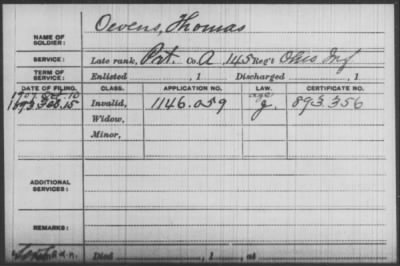 NAME OF SOLDIER: Owens, Thomas
SERVICE: Late rank, Prt. Co. A 145 Reg't Ohio Inf
TERM OF SERVICE: Enlisted , 1 Discharged , 1
DATE OF FILING. CLASS. APPLICATION NO. LAW. CERTIFICATE NO.
Invalid, 1146.059 g. 893.356
Widow,
Minor,
ADDITIONAL SERVICES:
REMARKS:
Died , 1 , at